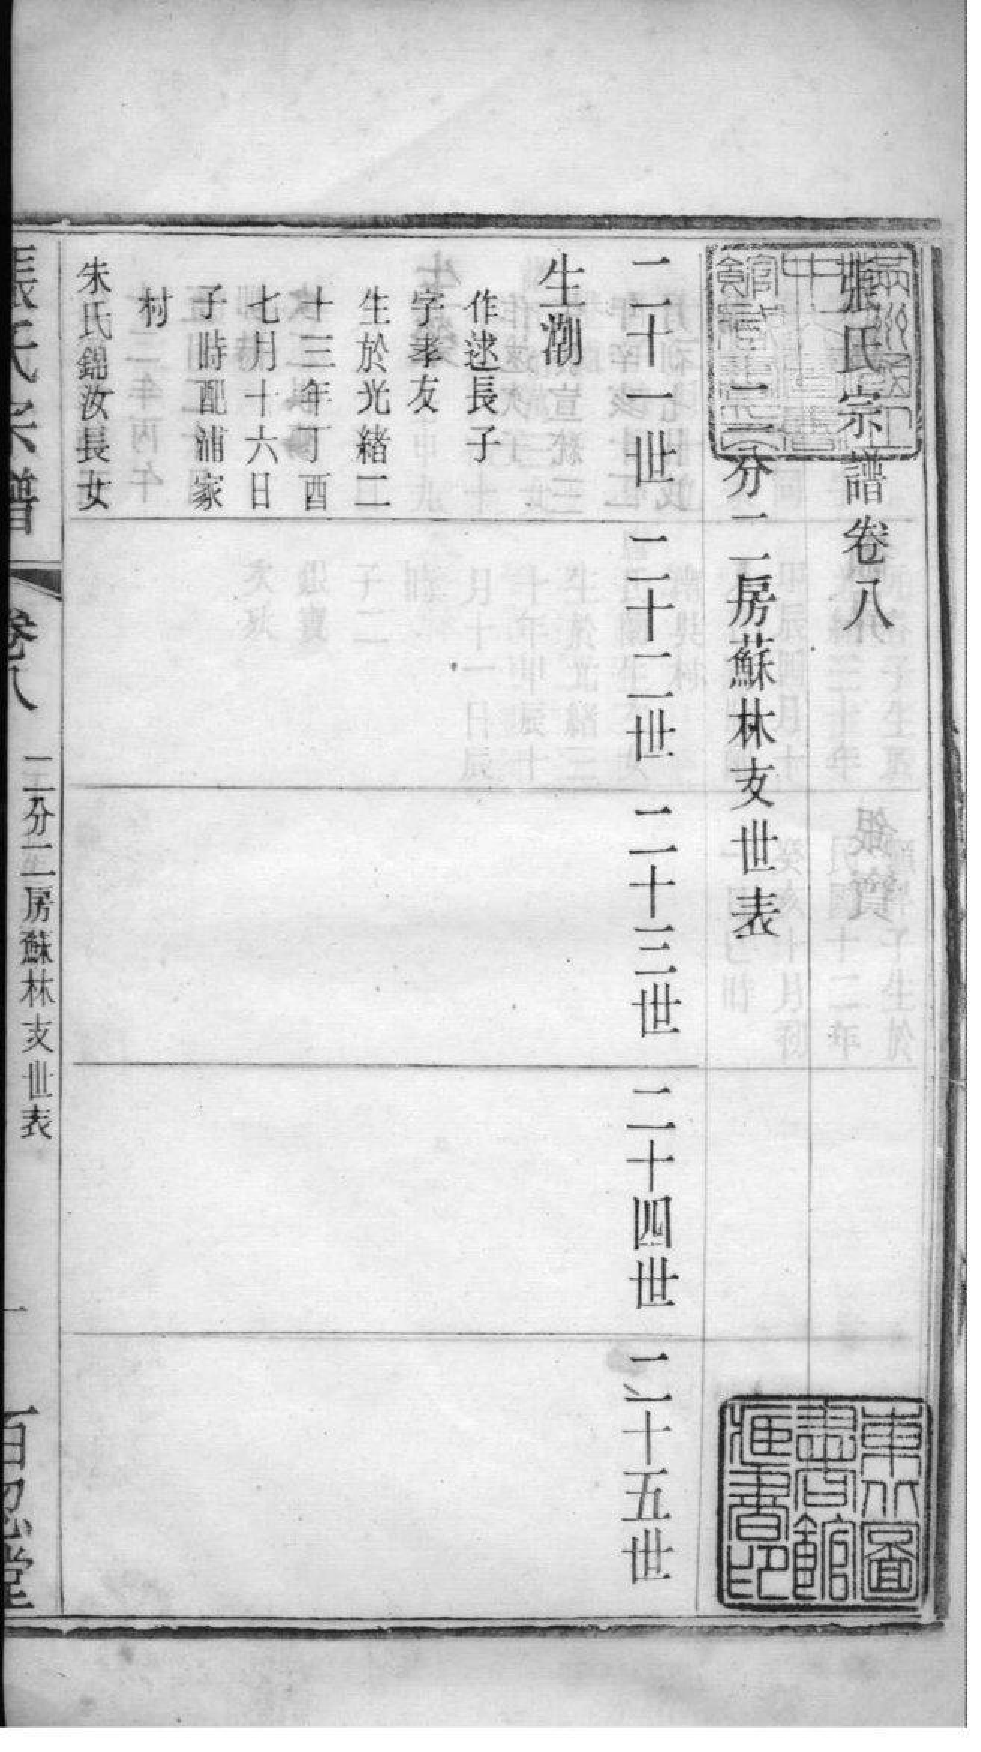 張氏宗譜卷八
二分二房蘇林支世表
二十一世 二十二世 二十三世 二十四世 二十五世
生潮
作逑長子
字孝友
生於光緒二
十三年丁酉
七月十六日
子時配浦家
村
朱氏錦汝長女
張氏宗譜 卷八 二分二房蘇林支世表 一 百忍堂